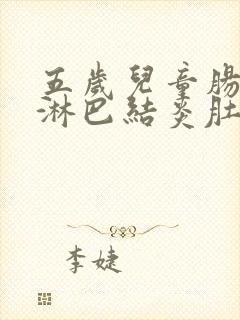 五歲兒童腸
淋巴結炎肚
李婕